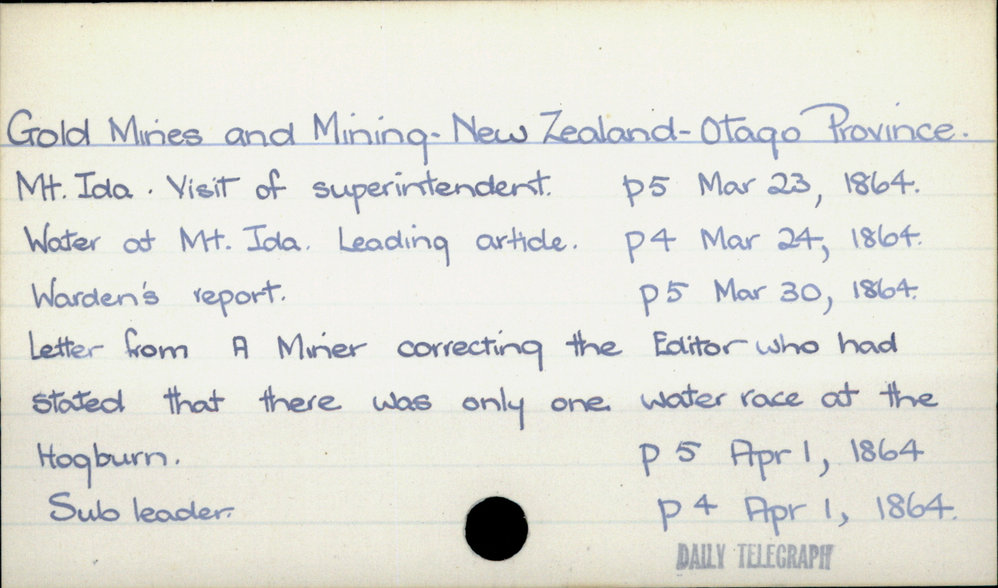 Gold Mines and Mining - New Zealand - Otago Province.
Mt. Ida. Visit of superintendent. p5 Mar 23, 1864.
Water at Mt. Ida. Leading article. p4 Mar 24, 1864.
Warden's report. p5 Mar 30, 1864.
Letter from A Miner correcting the Editor who had
stated that there was only one water race at the
Hogburn. p 5 Apr 1, 1864
Sub leader. p 4 Apr 1, 1864.
DAILY TELEGRAPH